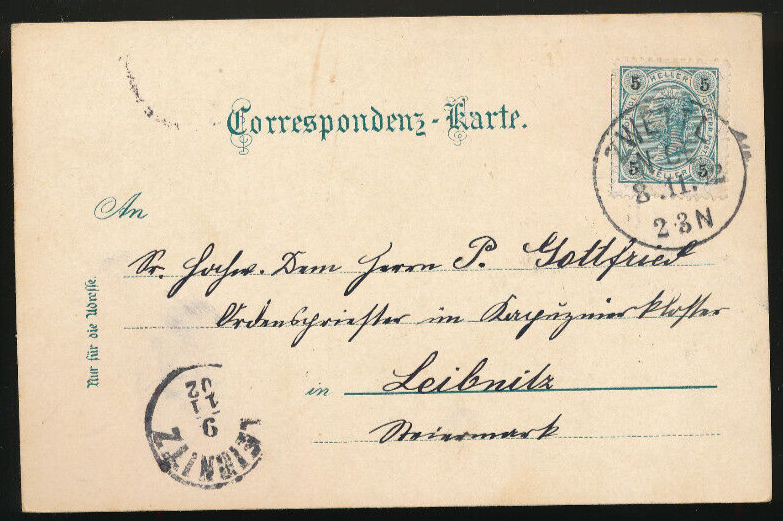 Correspondenz-Karte.
5 HELLER 5
5 HELLER 5
ZWETTL
N.Ö.
8.11.02
2-3N
An
Sr. Hochw. Dem Herrn P. Gottfried
Ordenspriester im Kapuzinerkloster
in Leibnitz
Steiermark
Nur für die Adresse.
LEIBNITZ
9